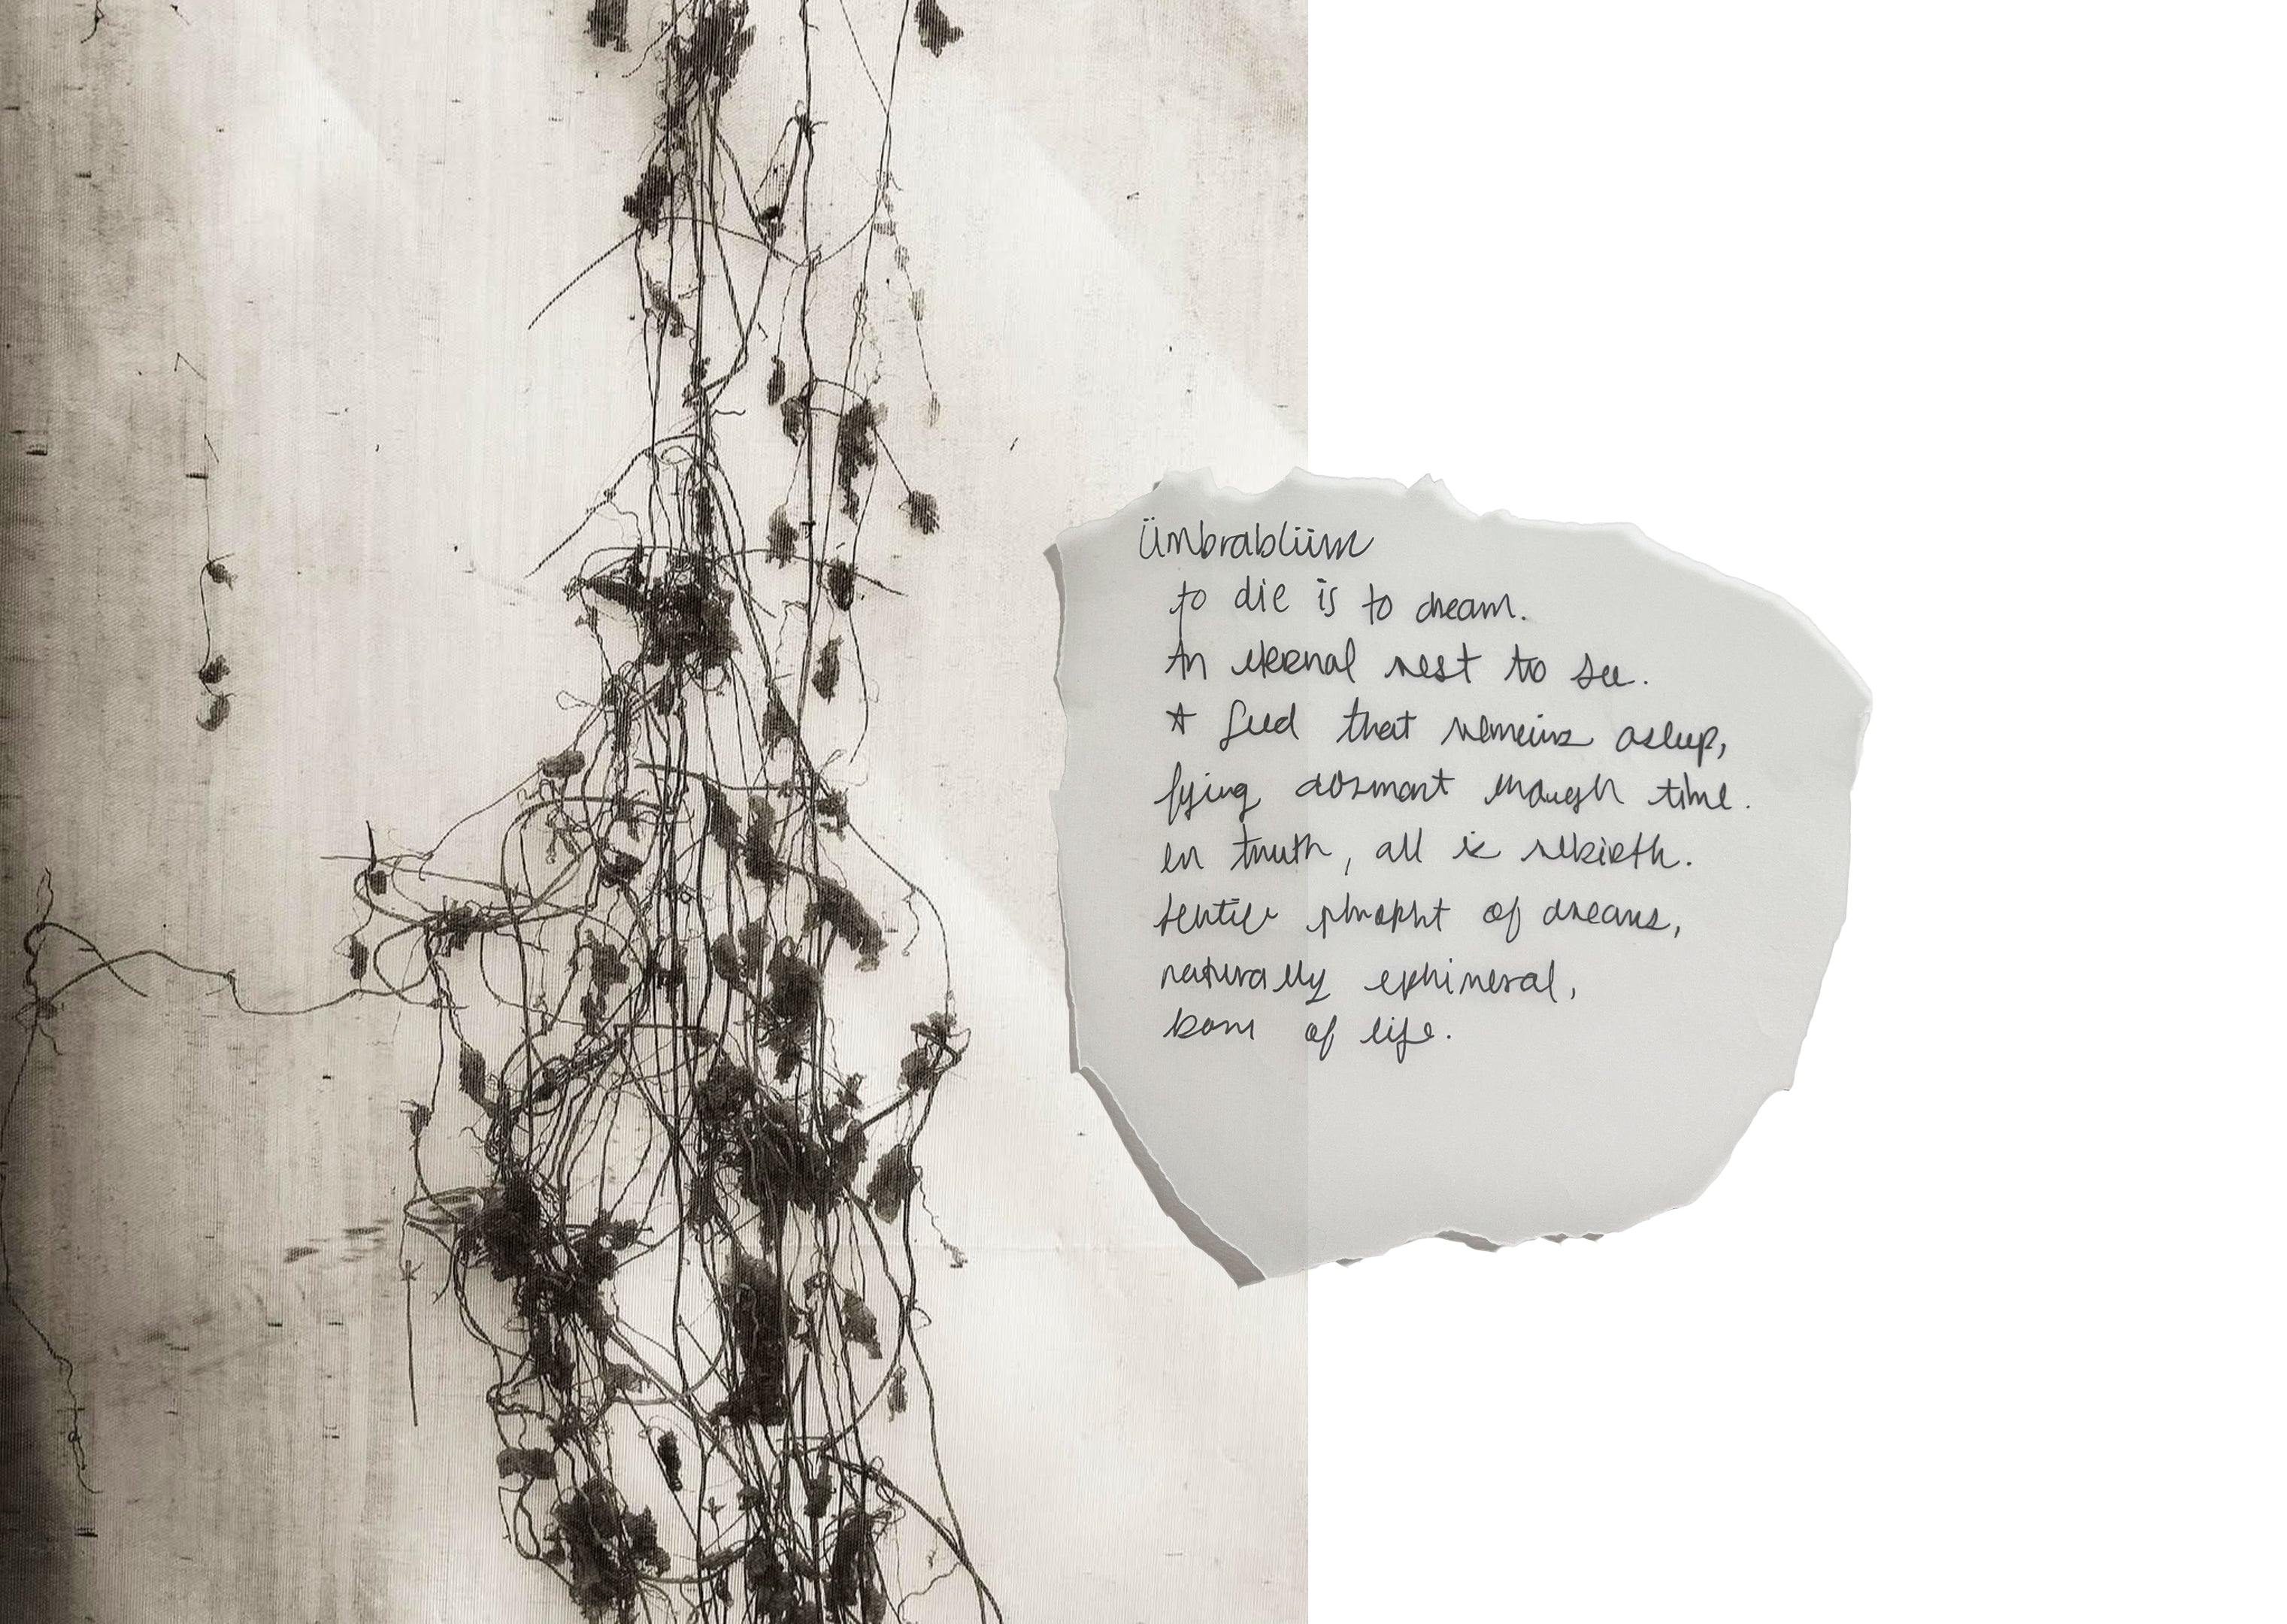 Ümbrablüm
to die is to dream.
An eternal rest to see.
A seed that remains asleep,
lying dormant through time.
in truth, all is rebirth.
of dreams,
naturally ephimeral,
born of life.